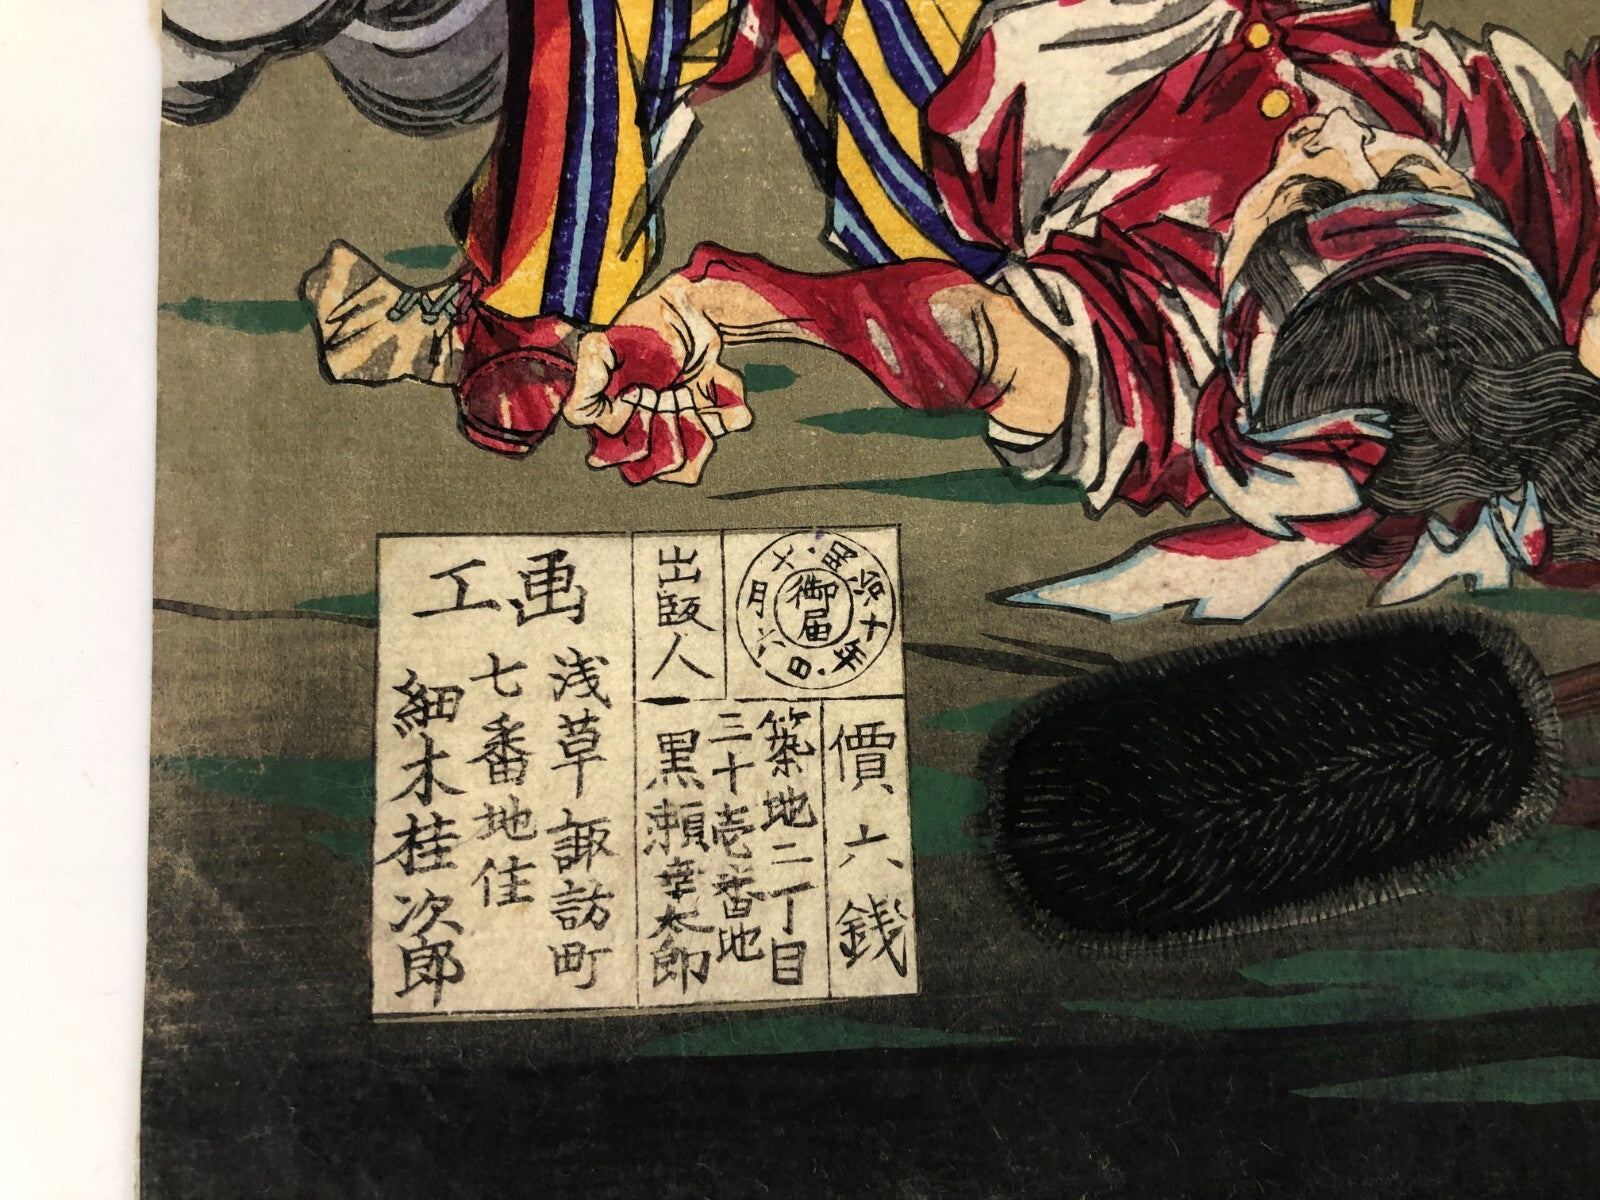 御届
明治十年
十月六日
價六銭
築地二丁目
三十壱番地
出版人
黒瀬幸太郎
画工
浅草諏訪町
七番地住
細木桂次郎